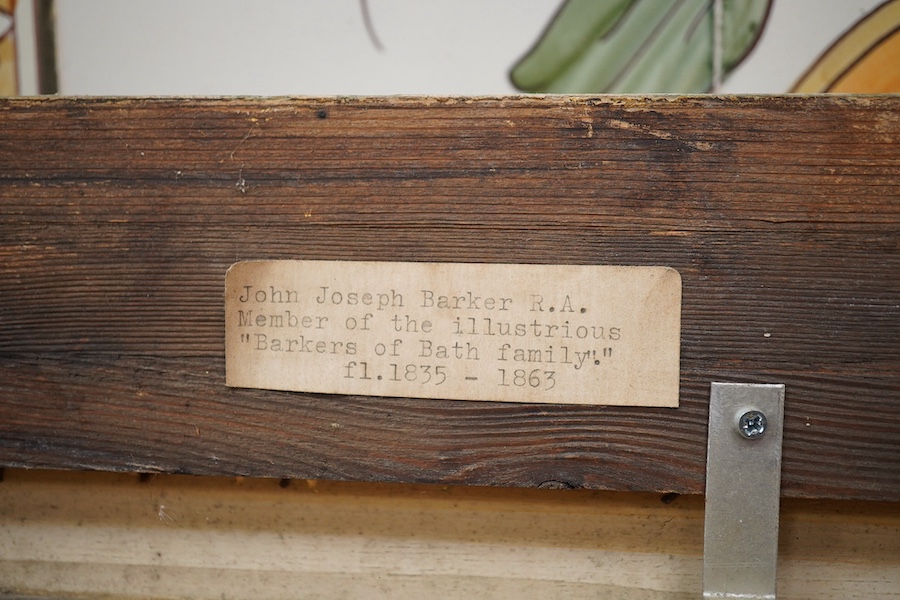 John Joseph Barker R.A.
Member of the illustrious
"Barkers of Bath family"."
fl.1835 - 1863